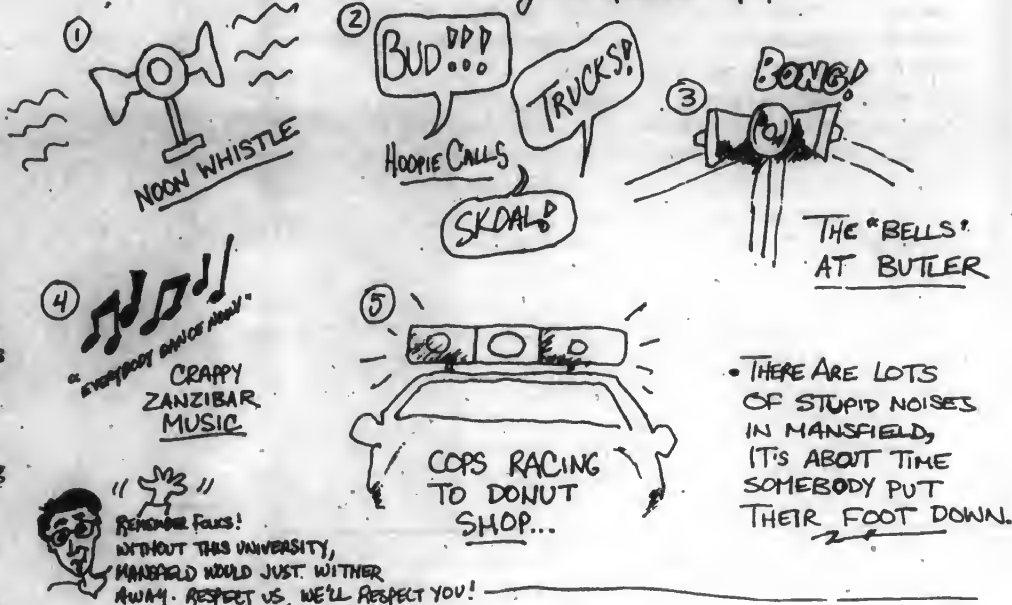 ①
NOON WHISTLE
②
BUD!!!
TRUCKS!
HOOPIE CALLS
SKOAL!
③
BONG!
THE "BELLS"
AT BUTLER
④
"EVERYBODY DANCE NOW"
CRAPPY
ZANZIBAR
MUSIC
⑤
COPS RACING
TO DONUT
SHOP...
• THERE ARE LOTS
OF STUPID NOISES
IN MANSFIELD,
IT'S ABOUT TIME
SOMEBODY PUT
THEIR FOOT DOWN.
REMEMBER FOLKS!
WITHOUT THIS UNIVERSITY,
MANSFIELD WOULD JUST WITHER
AWAY. RESPECT US, WE'LL RESPECT YOU!